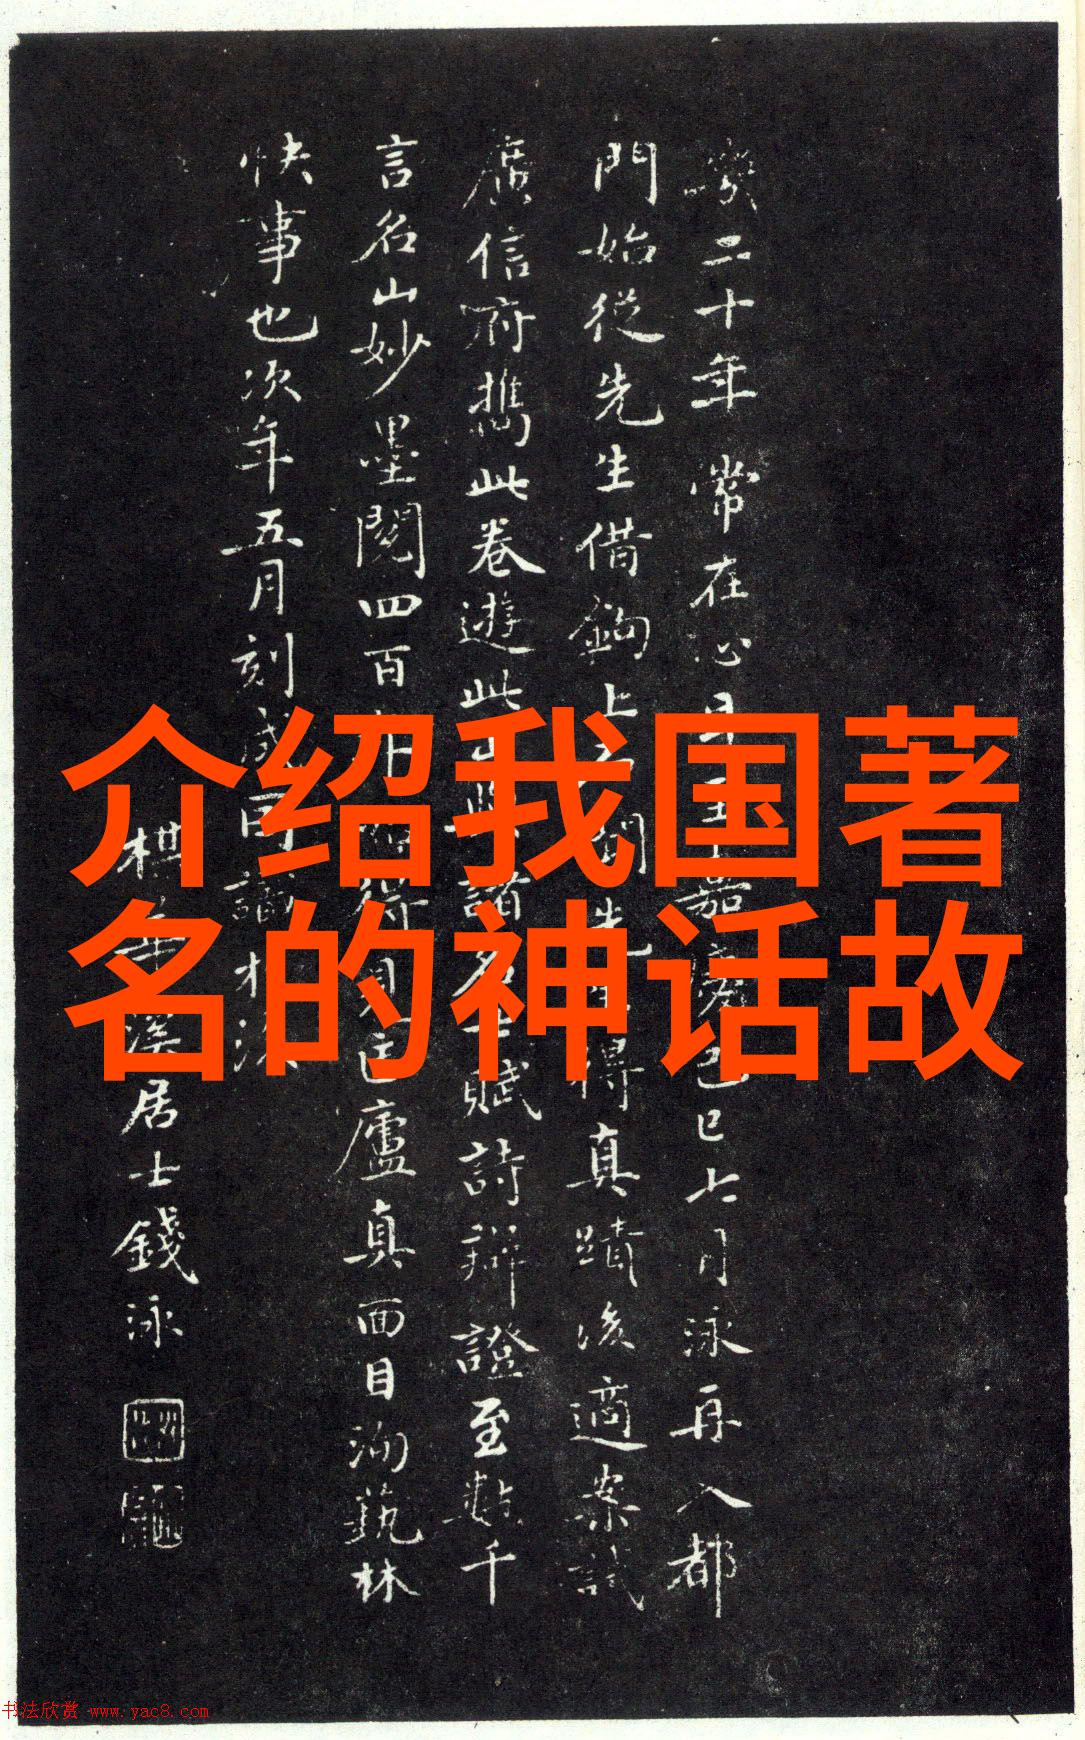 介绍我国著
名的神话故
二十年常在心目
巳七月泳再入都
門始從先生借鉤上石
得真蹟後適案試
廣信府攜此卷遊此
諸名士賦詩辯證至數千
言名山妙墨閱四百
得見匡廬真面目洵藝林
快事也次年五月刻成因識於後
梅華溪居士錢泳
书法欣赏 www.yac8.com